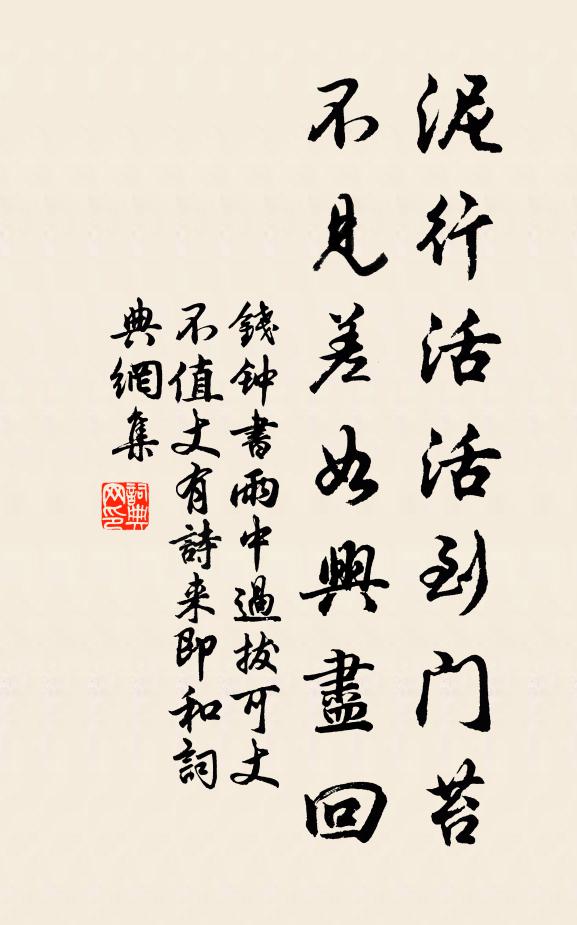 泥行活活到门苔
不見差如興盡回
錢钟書雨中過拔可丈
不值丈有詩来即和詞
典網集
詞典
网印